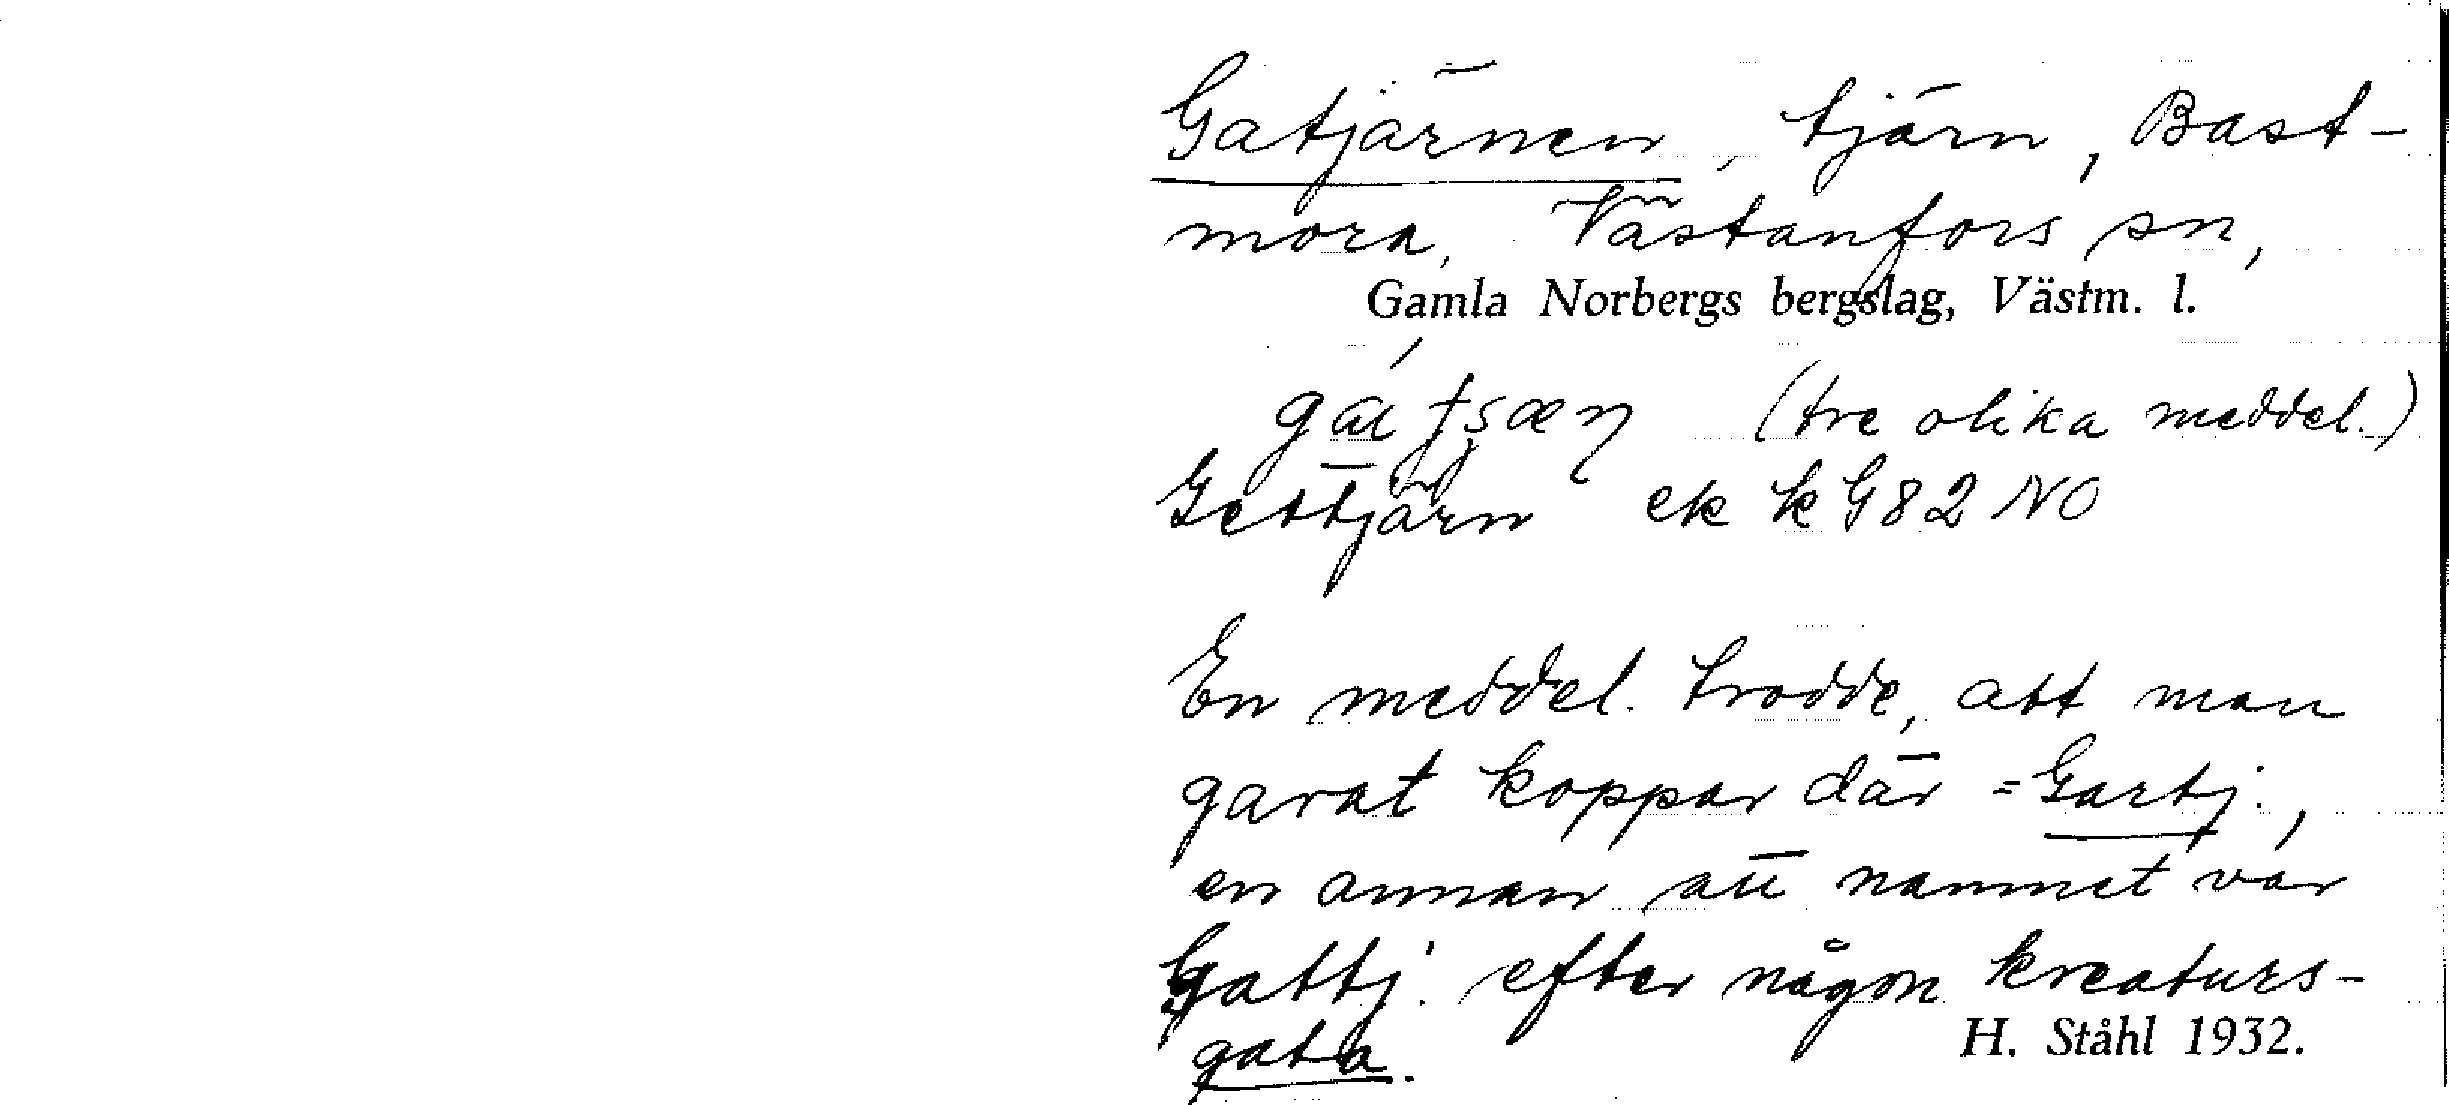 Gatjärnen, tjärn, Bast-
mora, Västanfors sn,
Gamla Norbergs bergslag, Västm. l.
(tre olika meddel.)
Gettjärn ek k G82 NO
En meddel. trodde, att man
garat koppar där = Gartj.,
en annan att namnet var
Gattj. efter någon kreaturs-
gata.
H. Ståhl 1932.